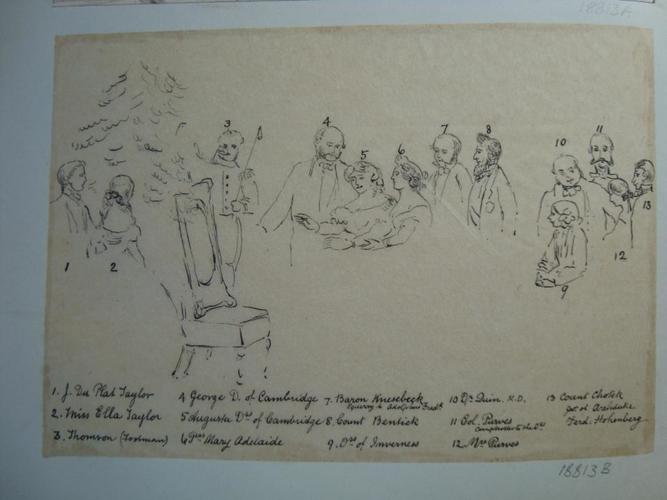 18813A
3
4
5
6
7
8
10
11
13
1
2
12
9
1. J. Du Plat Taylor
2. Miss Ella Taylor
3. Thomson (Footman)
4 George D. of Cambridge
5 Augusta Dss of Cambridge
6 Pss Mary Adelaide
7. Baron Knesebeck
Equerry to
8. Count Bentick
9. Dss of Inverness
10 Dr Quin. K.D.
11 Col. Purves
Comptroller to the Dss
12. Mrs Purves
13 Count Chotek
Ferd. Hohenberg
18813B